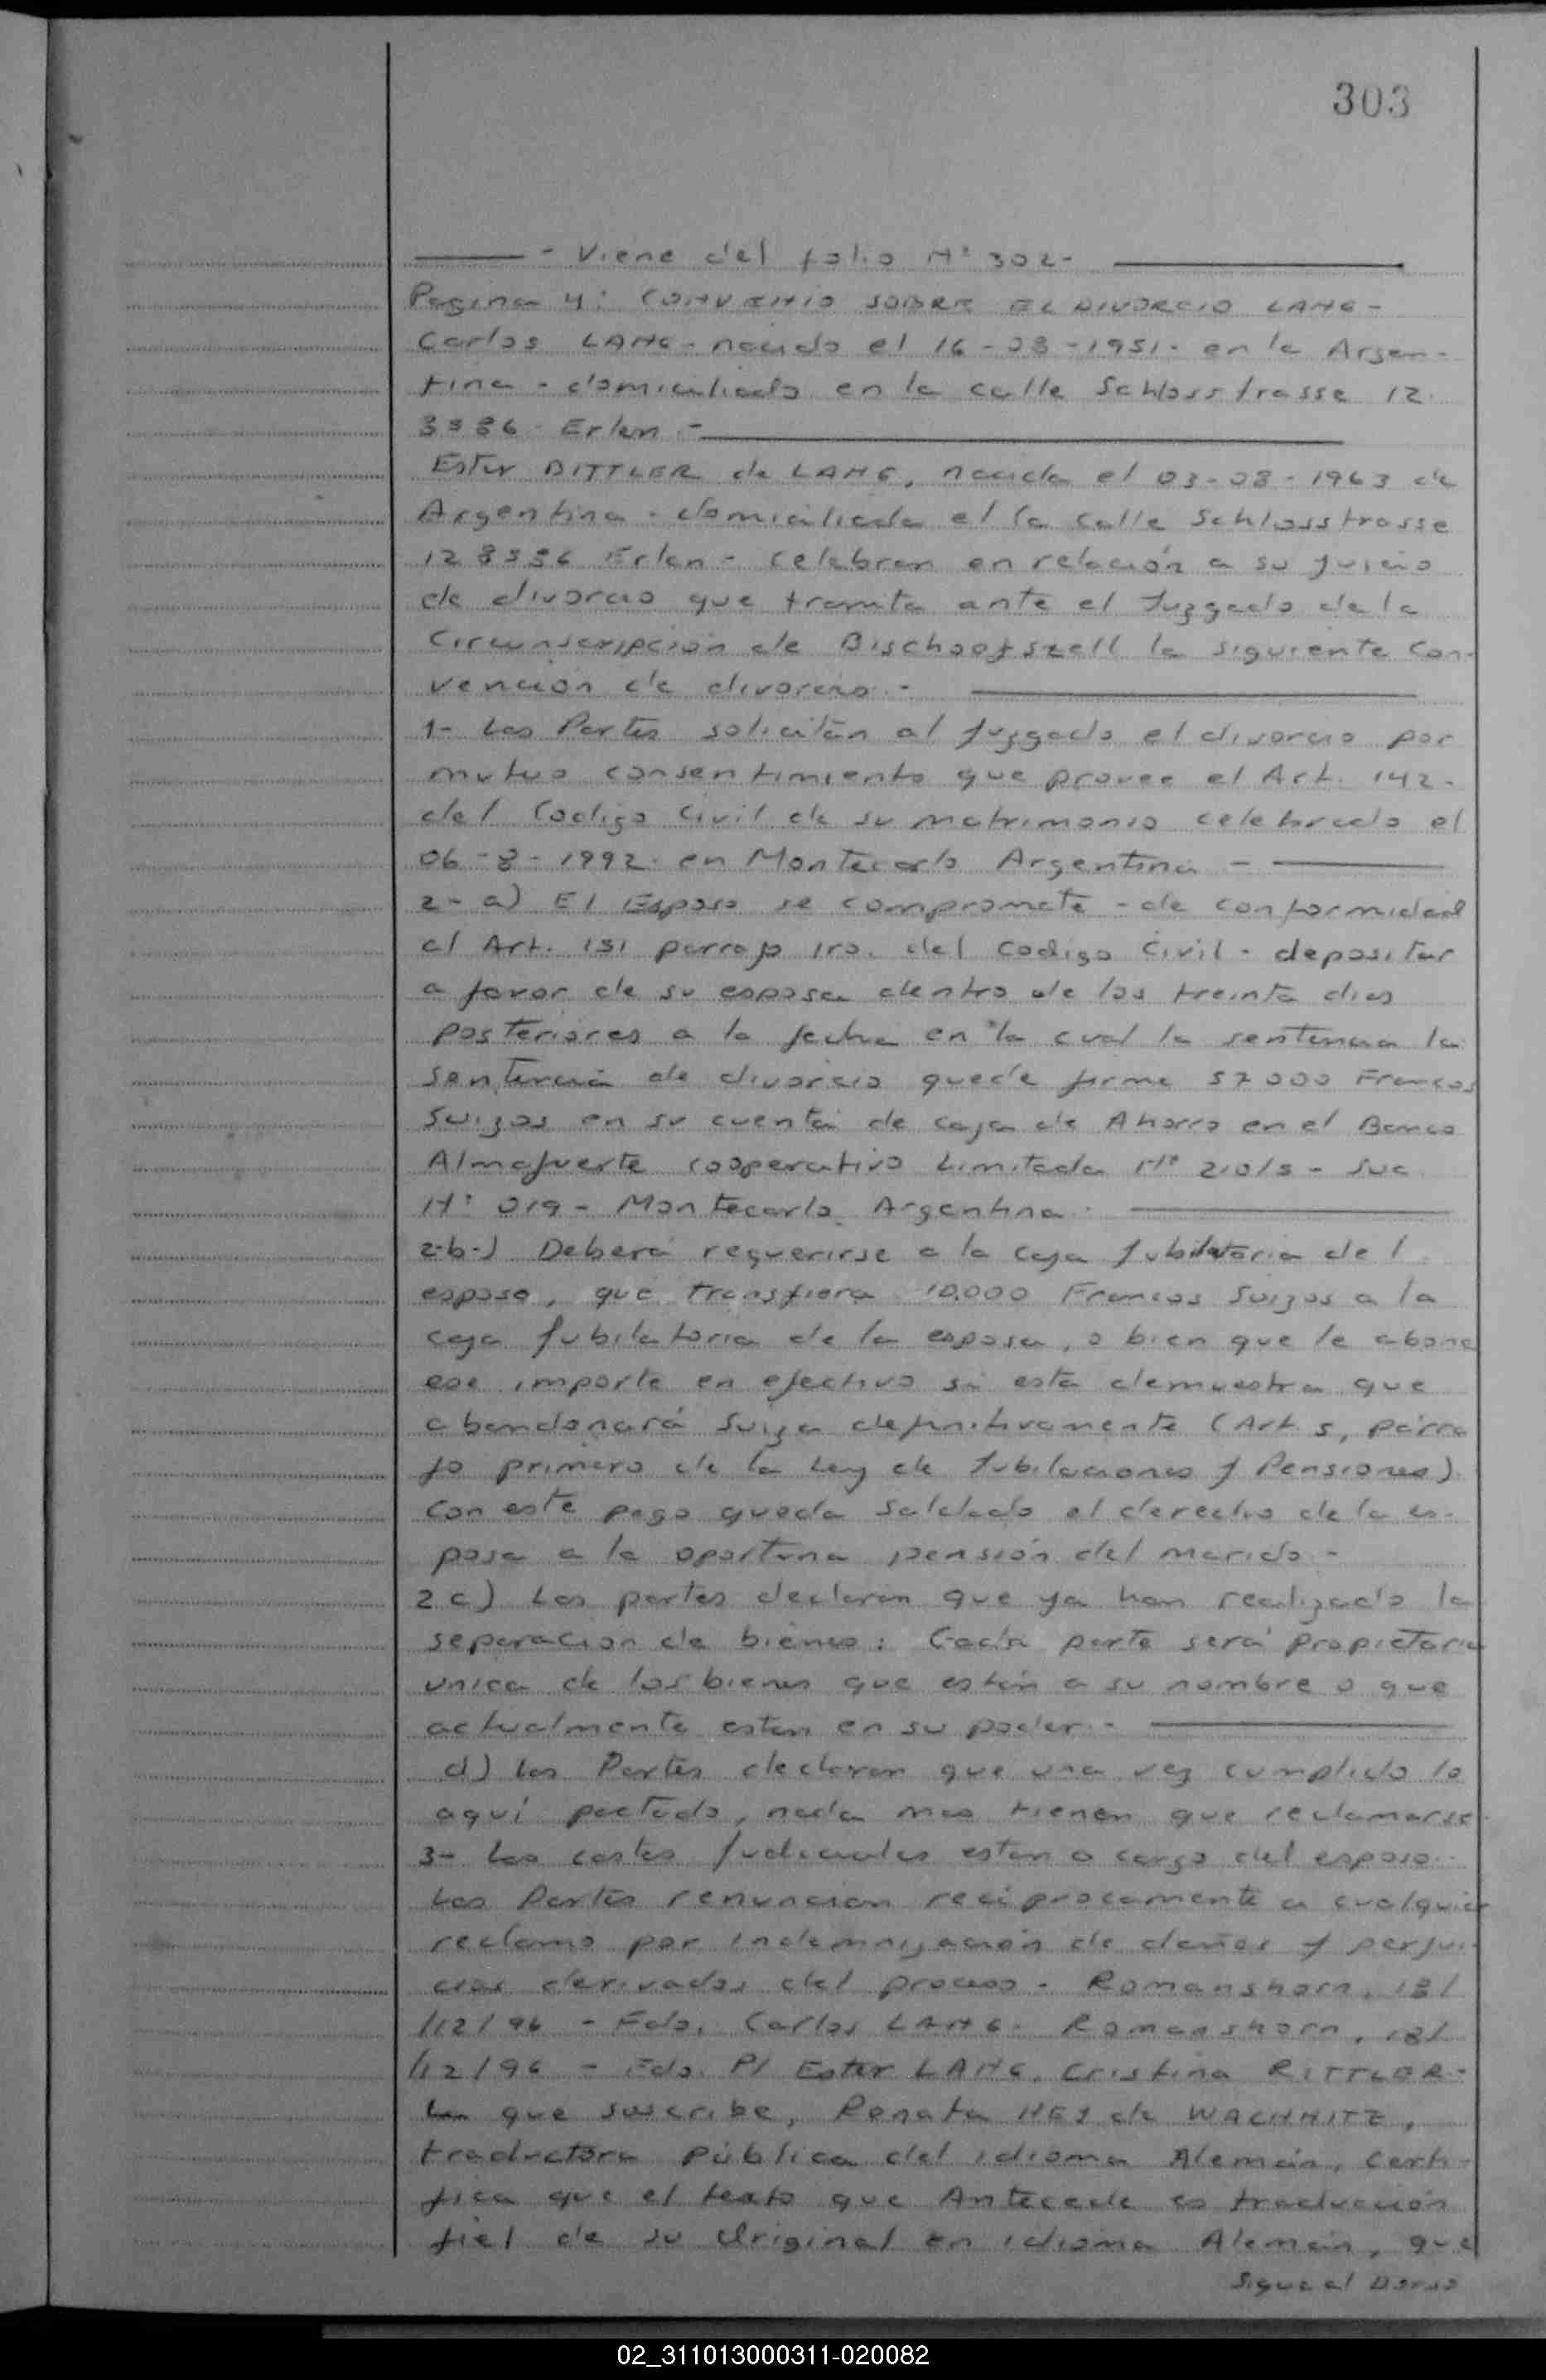 303
- Viene del folio Nº 302-
Pagina 4: CONVENIO SOBRE EL DIVORCIO LANG-
Carlos LANG - nacido el 16-08-1951- en la Argen-
tina - domiciliado en la calle Schlosstrasse 12
8586 Erlen -
Ester BITTLER de LANG, nacida el 03-08-1963 de
Argentina - domiciliada el la calle Schlosstrasse
12 8586 Erlen - celebran en relación a su juicio
de divorcio que tramita ante el Juzgado de la
Circunscripción de Bischoofszell la siguiente Con-
vención de divorcio -
1- Las Partes solicitan al Juzgado el divorcio por
mutuo consentimiento que provee el Art. 142-
del Codigo Civil de su matrimonio celebrado el
06-8-1992- en Montecarlo Argentina -
2- a) El Esposo se compromete - de conformidad
al Art. 151 parrafo 1ro. del Codigo Civil - depositar
a favor de su esposa dentro de los treinta dias
posteriores a la fecha en la cual la sentencia la
sentencia de divorcio quede firme 57000 Francos
Suizos en su cuenta de caja de Ahorro en el Banco
Almafuerte cooperativo Limitada Nº 210/5 - Suc
Nº 019 - Montecarlo Argentina -
2-b-) Deberá requerirse a la caja Jubilatoria del
esposo, que transfiera 10.000 Francos Suizos a la
caja Jubilatoria de la esposa, o bien que le abone
ese importe en efectivo si esta demuestra que
abandonará Suiza definitivamente (Art. 5, párra
fo primero de la Ley de Jubilaciones y Pensiones)
con este pago queda saldado el derecho de la es-
posa a la oportuna pensión del marido -
2 c) Las partes declaran que ya han realizado la
separacion de bienes: Cada parte será propietaria
unica de los bienes que están a su nombre o que
actualmente esten en su poder -
d) Las Partes declaran que una vez cumplido lo
aquí pactado, nada mas tienen que reclamarse
3- Las costas Judiciales estan a cargo del esposo -
Las Partes renuncian recíprocamente a cualquier
reclamo por indemnización de daños y perjui-
cios derivados del proceso - Romanshorn, 18/
/12/96 - Fdo. Carlos LANG - Romanshorn, 18/
/12/96 - Fdo. P/ Ester LANG, Cristina RITTLER-
La que suscribe, Renata de WACHNITZ,
traductora Pública del idioma Alemán, Certi-
fica que el texto que Antecede es traducción
fiel de su Original en idioma Alemán, que
Sigue al Dorso
02_311013000311-020082